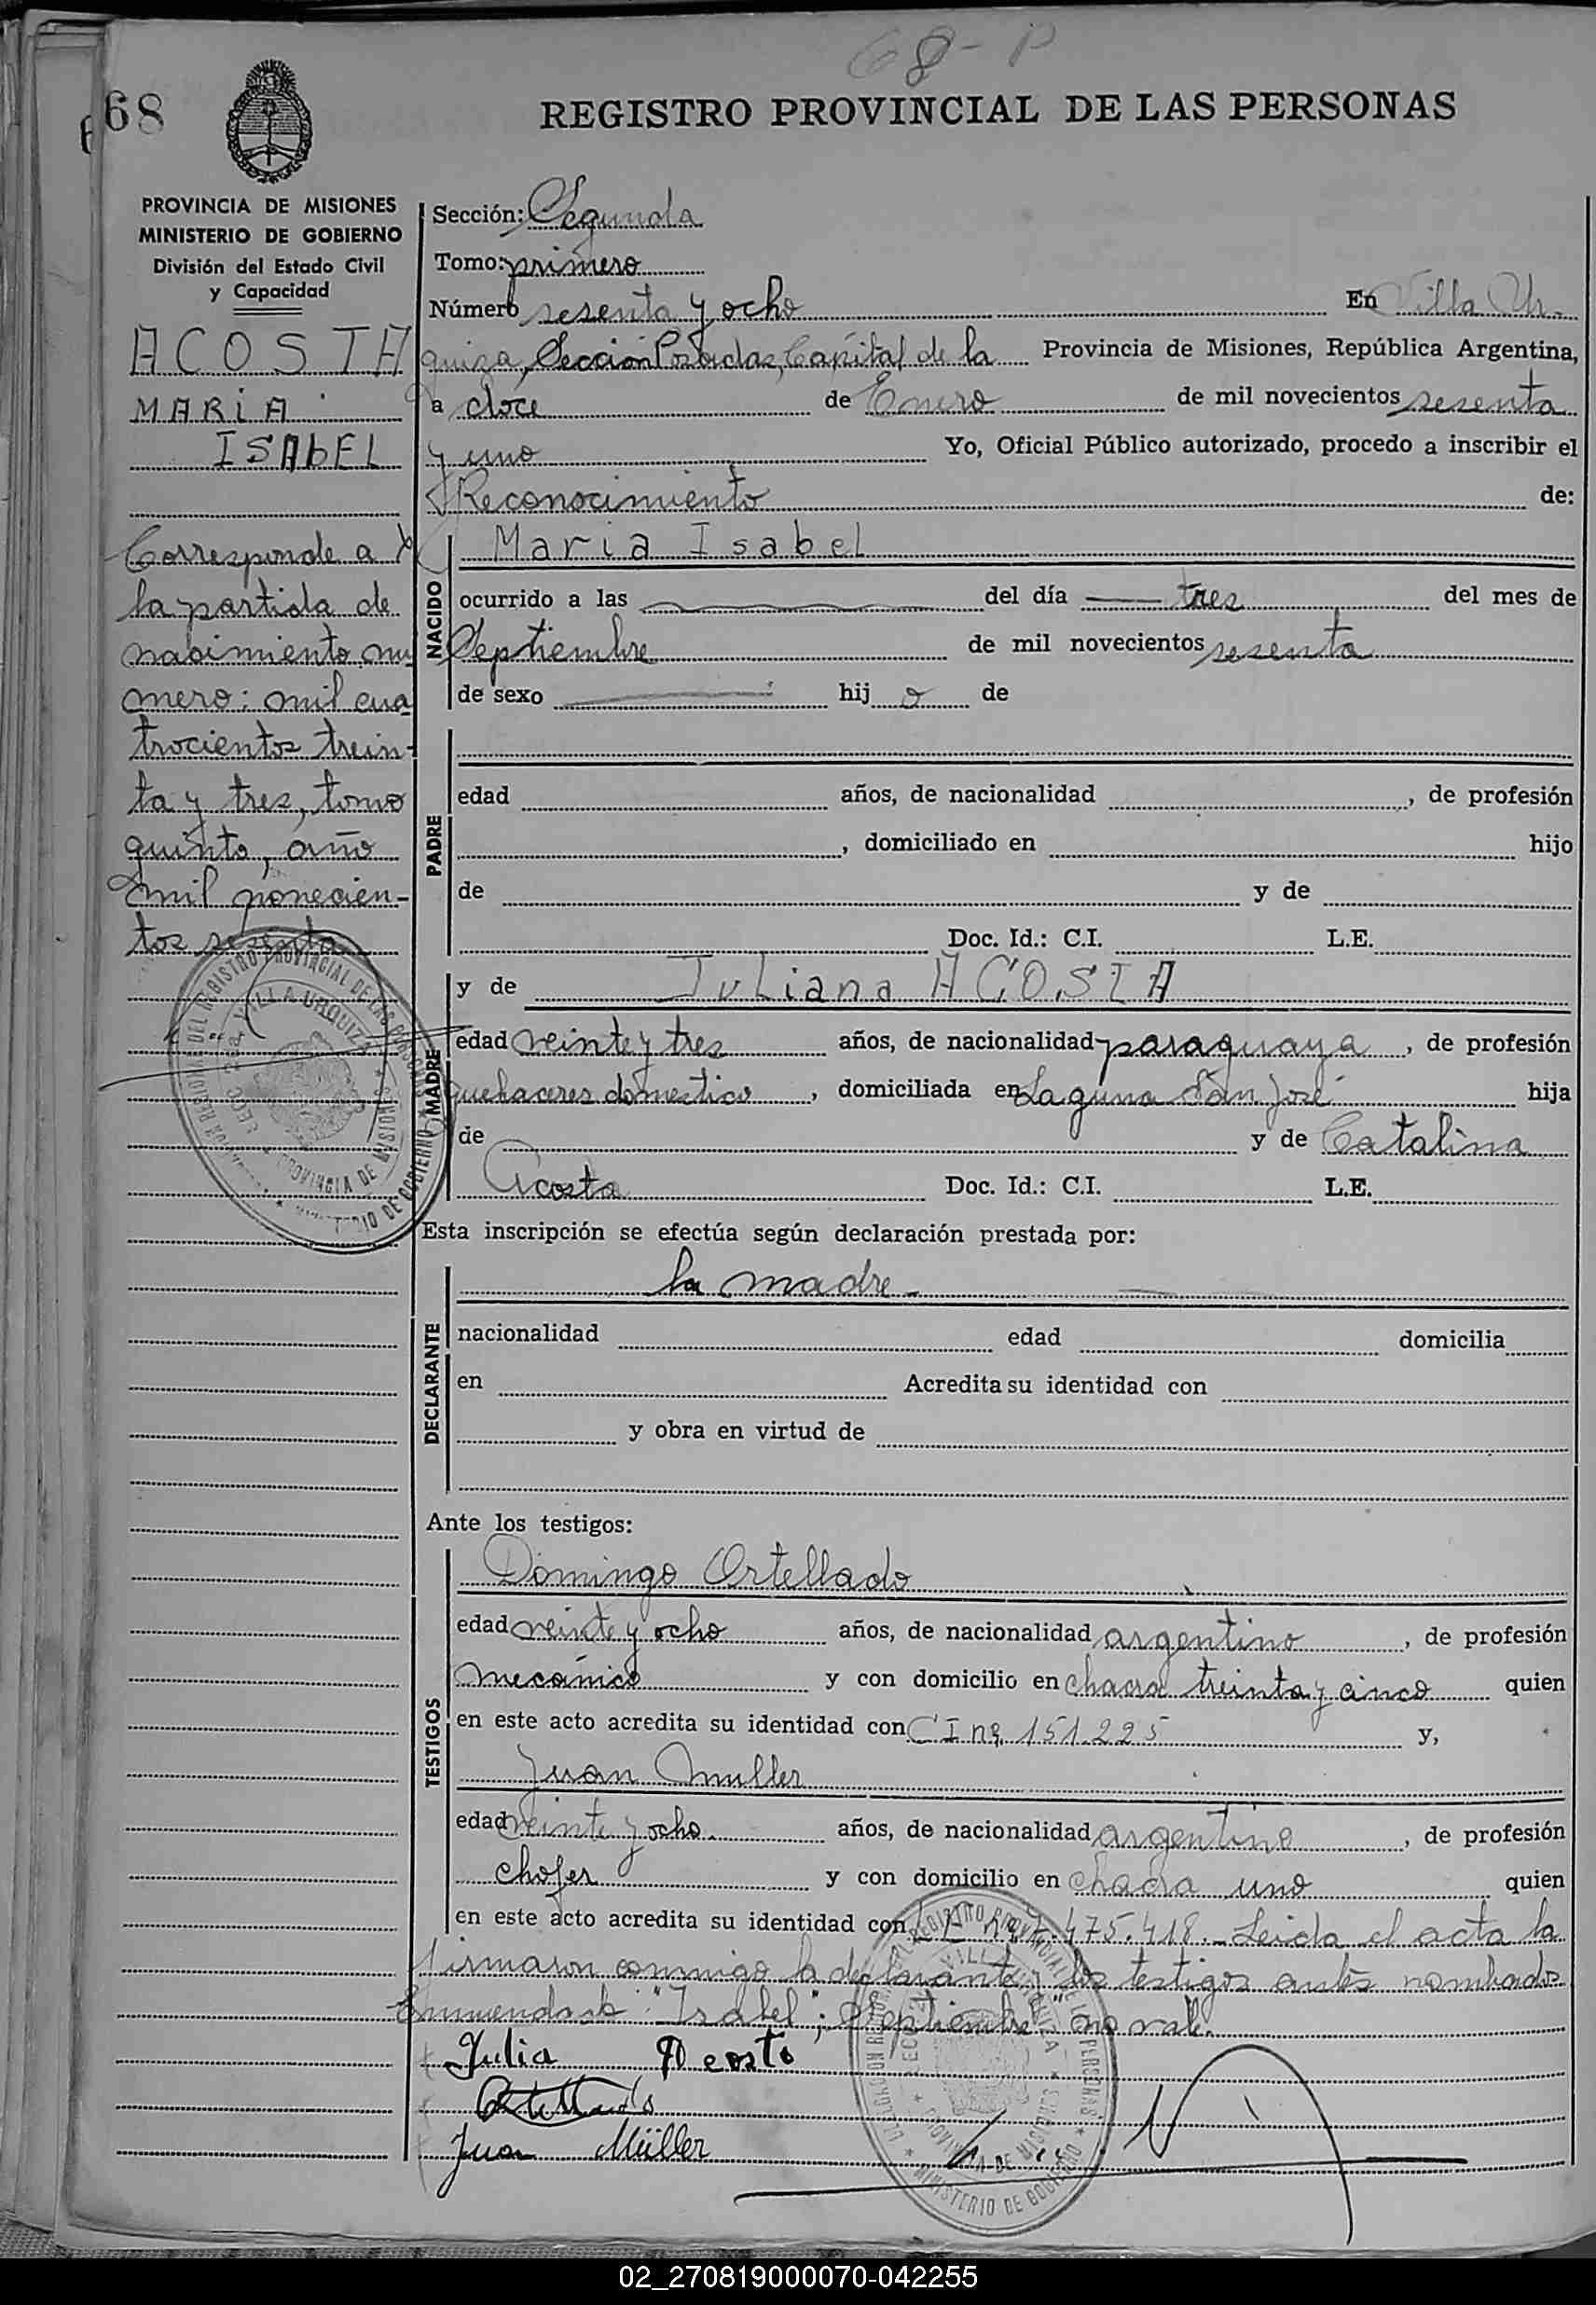 68 - P
68
REGISTRO PROVINCIAL DE LAS PERSONAS
PROVINCIA DE MISIONES
MINISTERIO DE GOBIERNO
División del Estado Civil
y Capacidad
ACOSTA
MARIA
ISABEL
Corresponde a
la partida de
nacimiento nu
mero: mil cua
trocientos trein-
ta y tres, tomo
quinto, año
mil novecien-
tos sesenta
Sección: Segunda
Tomo: primero
Número sesenta y ocho En Villa Ur-
quiza, Sección Posadas, Capital de la Provincia de Misiones, República Argentina,
a doce de Enero de mil novecientos sesenta
y uno Yo, Oficial Público autorizado, procedo a inscribir el
Reconocimiento de:
NACIDO
Maria Isabel
ocurrido a las del día tres del mes de
Septiembre de mil novecientos sesenta
de sexo hij o de
PADRE
edad años, de nacionalidad , de profesión
, domiciliado en hijo
de y de
Doc. Id.: C.I. L.E.
MADRE
y de Juliana ACOSTA
edad veinte y tres años, de nacionalidad paraguaya, de profesión
quehaceres domestico, domiciliada en Laguna San José hija
de y de Catalina
Acosta Doc. Id.: C.I. L.E.
Esta inscripción se efectúa según declaración prestada por:
DECLARANTE
la madre-
nacionalidad edad domicilia
en Acredita su identidad con
y obra en virtud de
Ante los testigos:
TESTIGOS
Domingo Ortellado
edad veinte y ocho años, de nacionalidad argentino, de profesión
mecánico y con domicilio en chacra treinta y cinco quien
en este acto acredita su identidad con CI nº 151.225 y,
Juan Muller
edad veinte y ocho. años, de nacionalidad argentino, de profesión
chofer y con domicilio en chacra uno quien
en este acto acredita su identidad con 7.475.418.- Leida el acta la
firmaron conmigo la declarante y los testigos antes nombrados
Enmendado: "Isabel"; "Septiembre" vale.
Julia Acosta
Ortellado
Juan Müller
VILLA URQUIZA
PROVINCIA DE MISIONES
MINISTERIO DE GOBIERNO
02_270819000070-042255